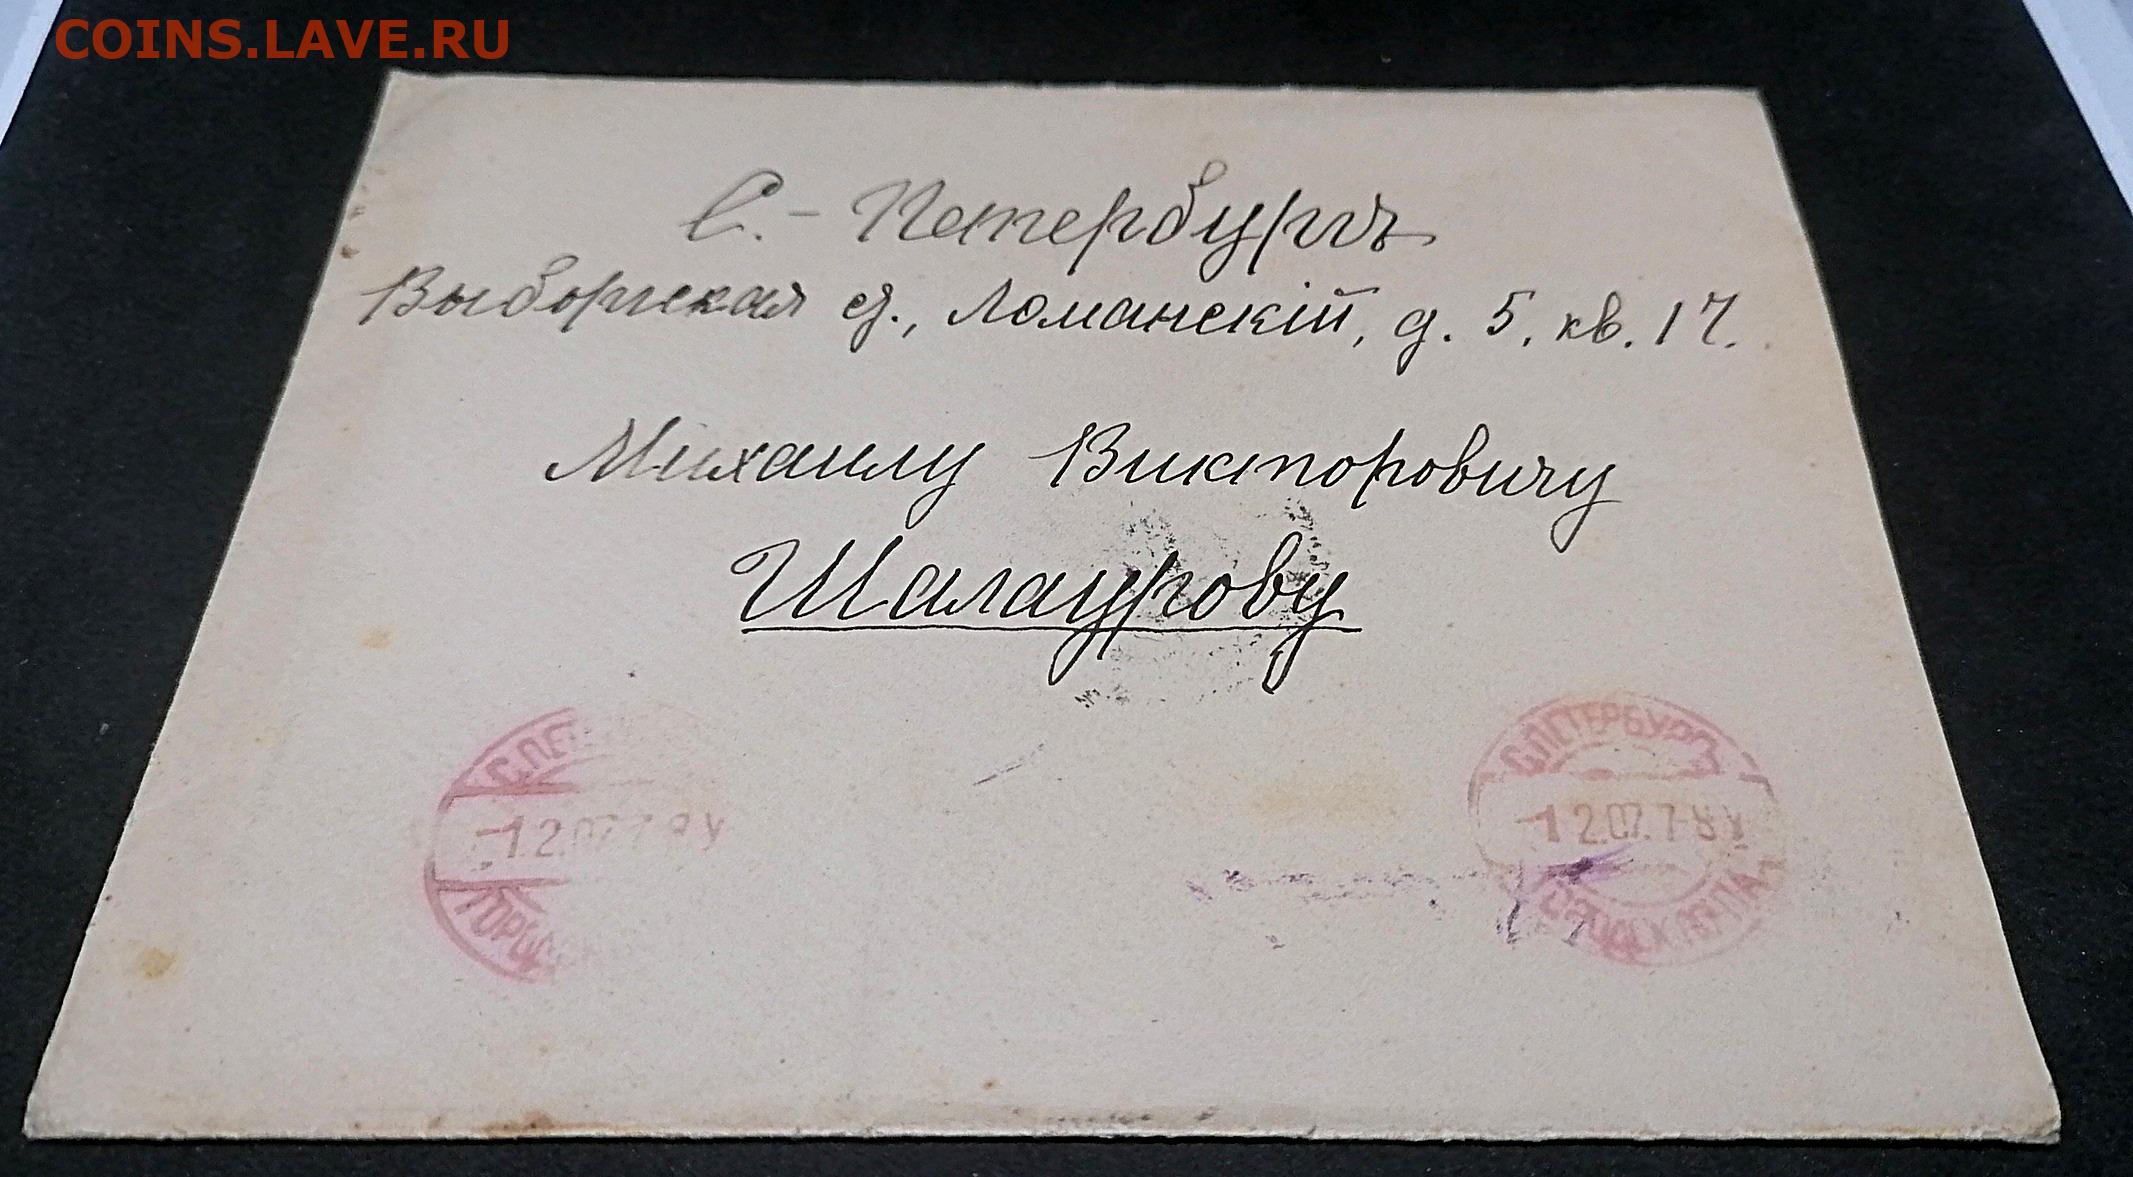 COINS.LAVE.RU
С.-Петербургъ
Выборгская ст., Ломанскій, д. 5, кв. 17.
Михаилу Викторовичу
Шалаурову
С.ПЕТ
-1.2.07.7-8 У
ГОР
С.ПЕТЕРБУРГЪ
-1 2.07.7-8 У
ПОЧТА